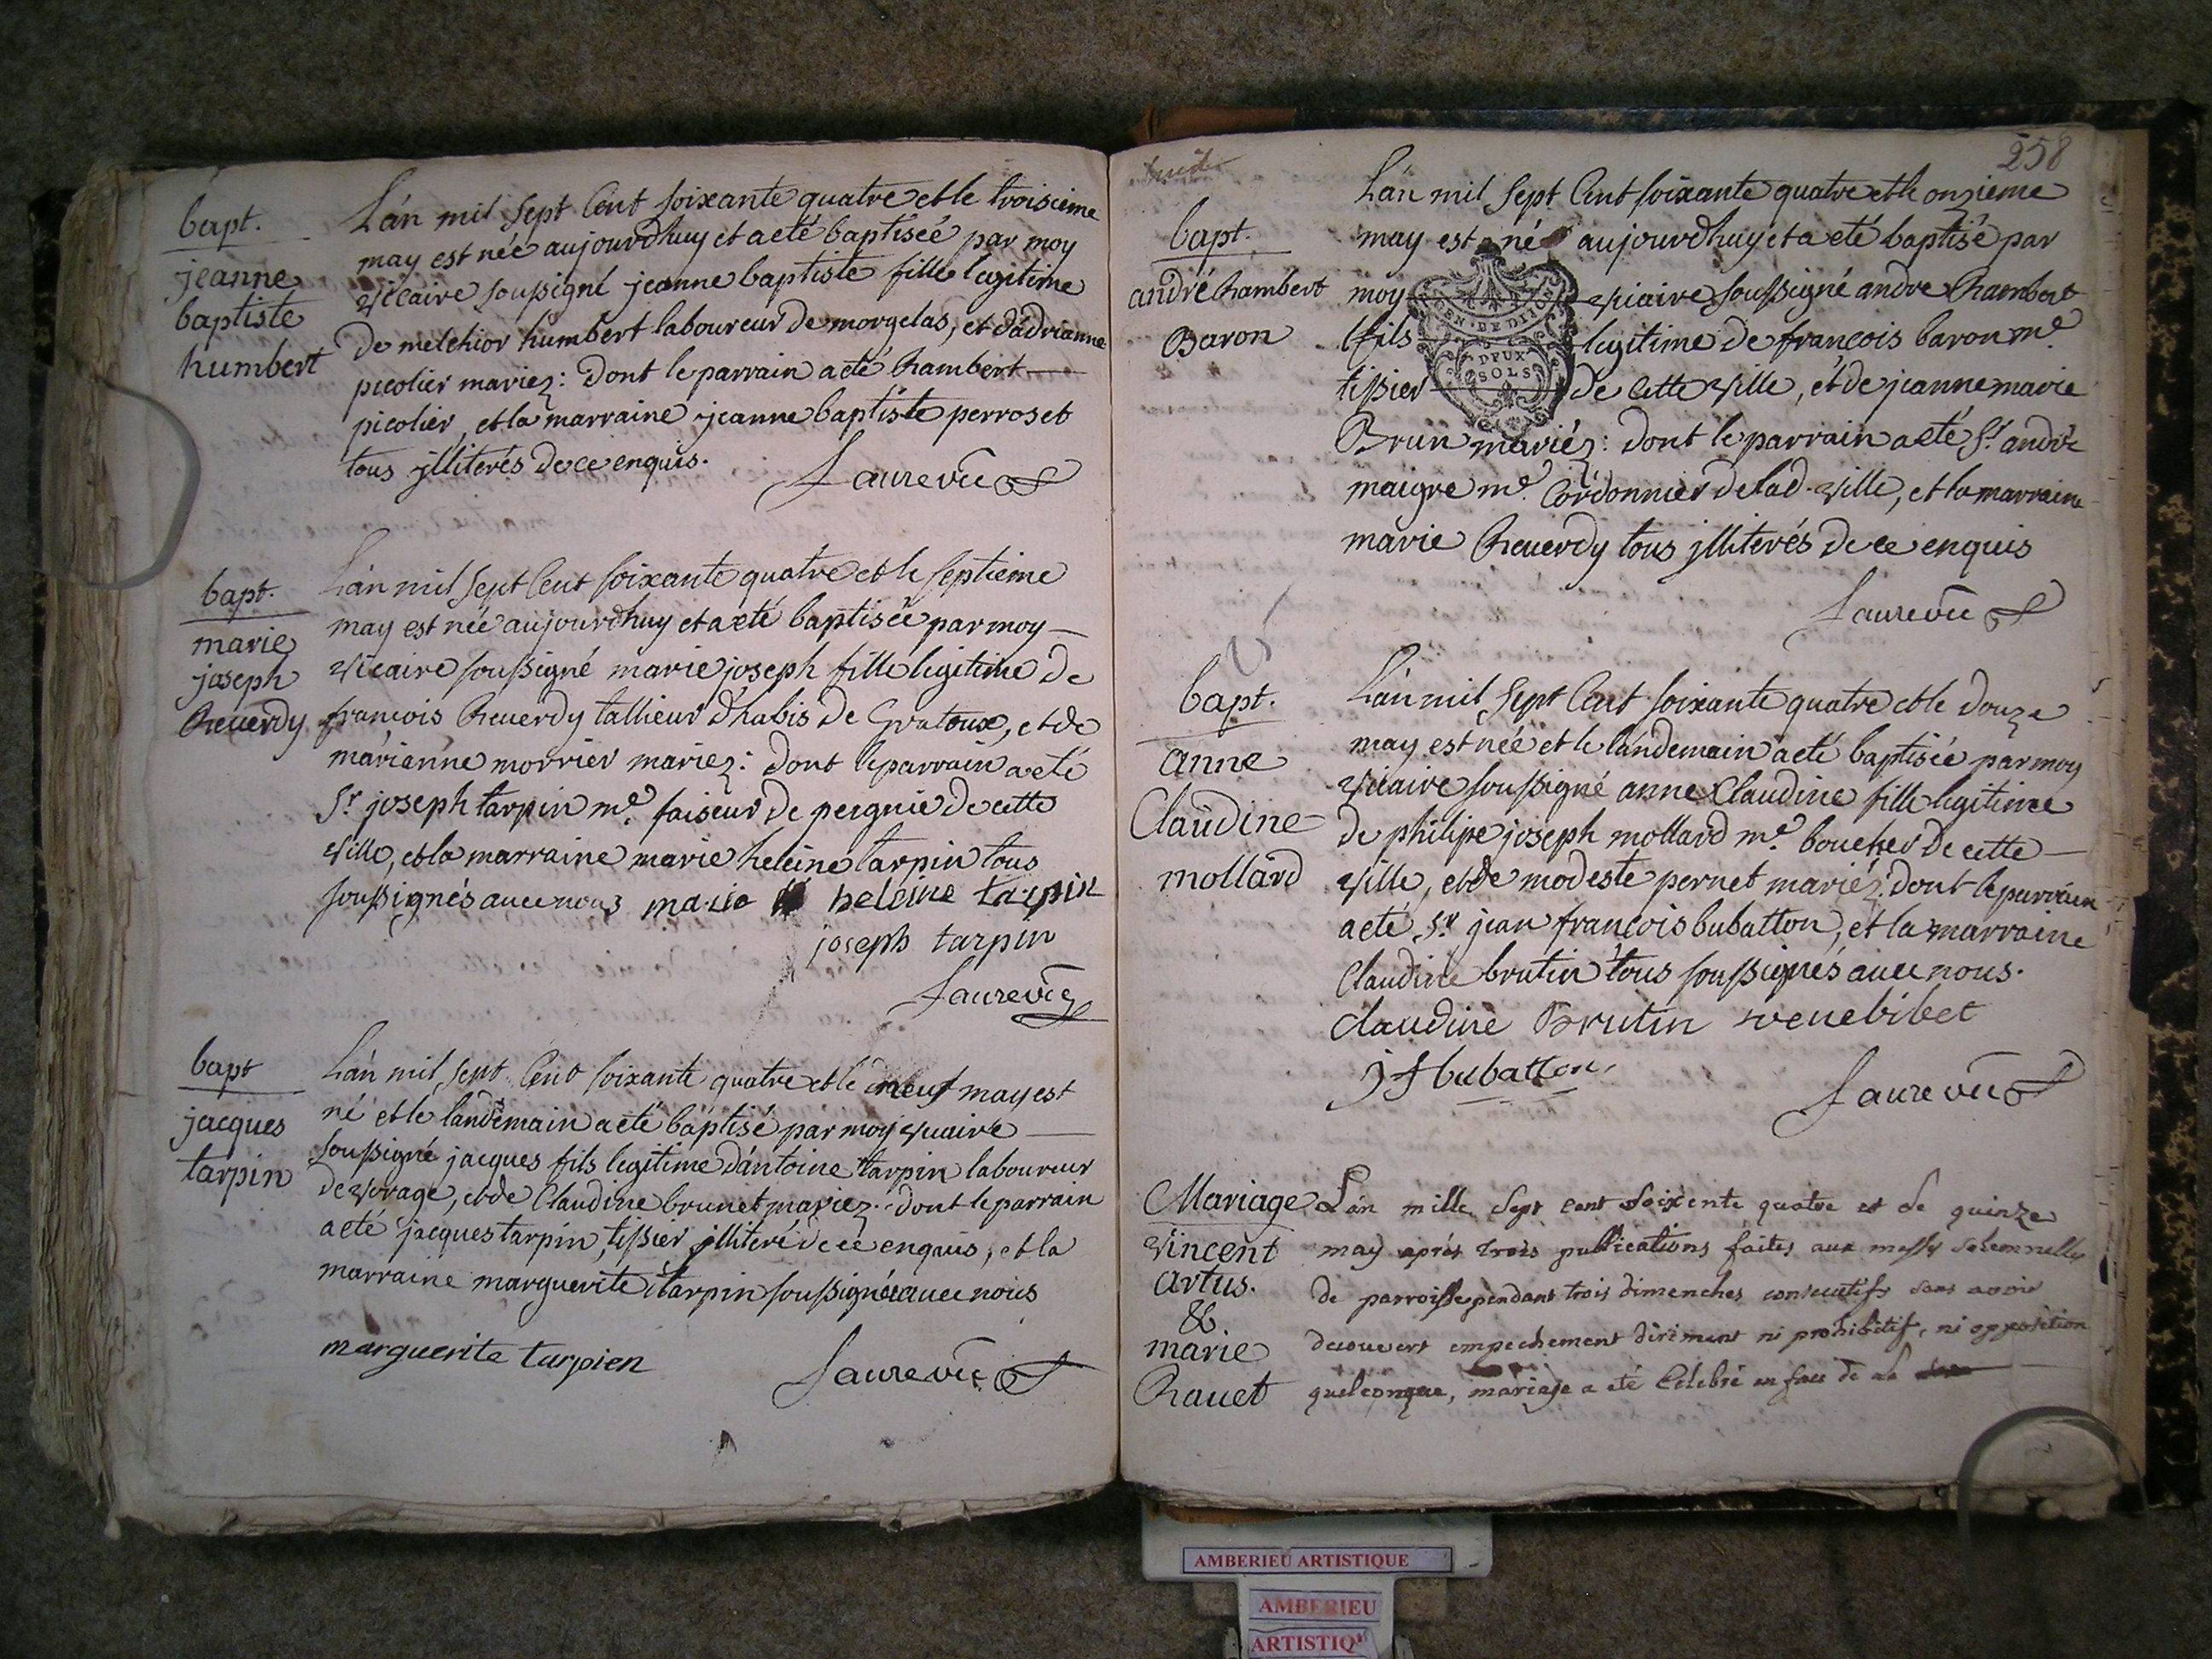 bapt.
jeanne
baptiste
humbert
L'an mil sept Cent soixante quatre et le troisieme
may est née aujourdhuy et a eté baptisée par moy
vicaire soussigné jeanne baptiste fille legitime
de melchior humbert laboureur de morgelas, et d'adrianne
picolier mariez: dont le parrain a eté Rambert
picolier, et la marraine jeanne baptiste perroset
tous illiterés de ce enquis.
faure vic
bapt.
marie
joseph
Reuerdy
L'an mil sept Cent soixante quatre et le septieme
may est née aujourdhuy et a eté baptisée par moy
vicaire soussigné marie joseph fille legitime de
francois Reuerdy tallieur d'habis de Gratoux, et de
marianne morrier mariez: dont le parrain a eté
Sr. joseph tarpin me. faiseur de peignie de cette
ville, et la marraine marie heleine tarpin tous
soussignés auec nous marie heleine tarpin
joseph tarpin
faure vic
bapt
jacques
tarpin
L'an mil sept Cent soixante quatre et le neuf may est
né et le landemain a eté baptisé par moy vicaire
soussigné jacques fils legitime d'antoine tarpin laboureur
de vorage, et de Claudine brunet mariez: dont le parrain
a eté jacques tarpin, tissier illiteré de ce enquis, et la
marraine marguerite tarpin soussignée auec nous
marguerite tarpien
faure vic
258
bapt.
andré Rambert
Baron
L'an mil sept Cent soixante quatre et le onzieme
may est né aujourdhuy et a eté baptisé par
moy vicaire soussigné andre Rambert
fils legitime de francois baron me.
tissier de cette ville, et de jeanne marie
Brun mariéz: dont le parrain a eté Sr. andré
maigre me. Cordonnier de lad. ville, et la marraine
marie Reuerdy tous illiterés de ce enquis
faure vic
GEN. DE DIJ
DEUX
SOLS
bapt.
anne
Claudine
mollard
L'an mil sept Cent soixante quatre et le douze
may est née et le landemain a eté baptisée par moy
vicaire soussigné anne Claudine fille legitime
de philipe joseph mollard me. boucher de cette
ville, et de modeste pernet mariéz: dont le parrain
a eté, Sr. jean francois bubatton, et la marraine
Claudine brutin tous soussignés auec nous.
Claudine Brutin veuebibet
J f bubatton
faure vic
Mariage
vincent
artus.
&
marie
Rauet
L'an mille Sept cent Soixente quatre et le quinze
may aprés trois publications faites aux messes solemnelles
de parroisse pendant trois dimenches consecutifs sans avoir
decouvert empechement diriment ni prohibitif, ni opposition
quelconque, mariage a eté Celebré en face de la
AMBERIEU ARTISTIQUE
AMBERIEU
ARTISTIQ